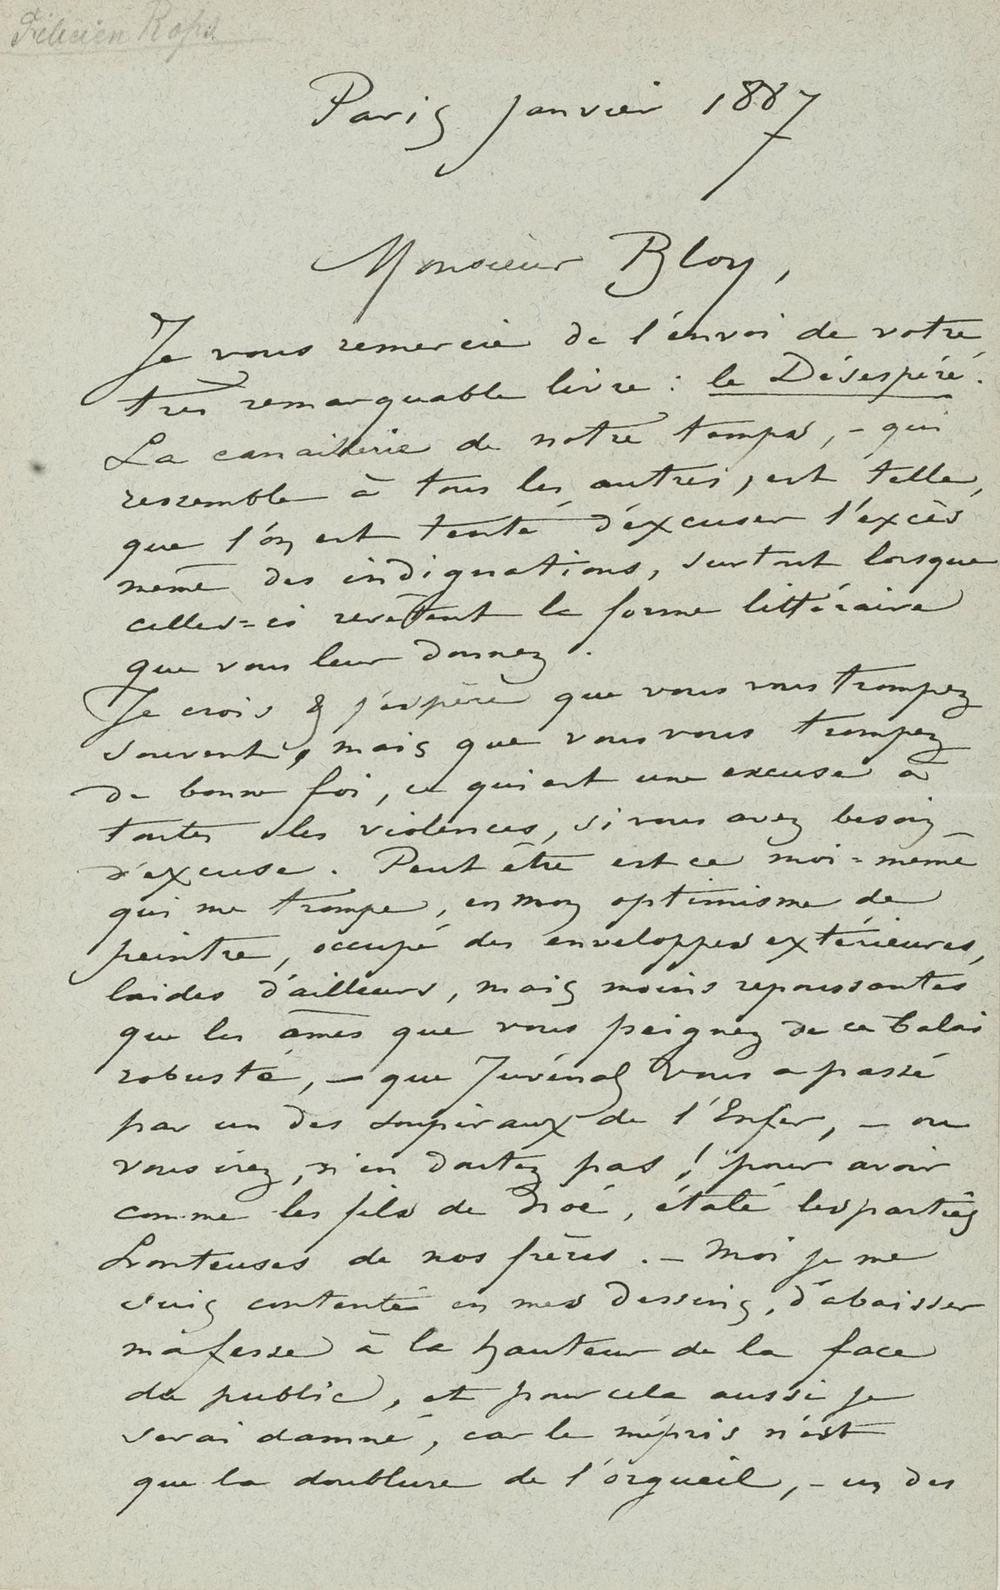 Félicien Rops
Paris janvier 1887
Monsieur Bloy,
Je vous remercie de l'envoi de votre
très remarquable livre : le Désespéré.
La canaillerie de notre temps, – qui
ressemble à tous les autres, est telle,
que l'on est tenté d'excuser l'excès
même des indignations, surtout lorsque
celles-ci revêtent la forme littéraire
que vous leur donnez.
Je crois & j'espère que vous vous trompez
souvent, mais que vous vous trompez
de bonne foi, ce qui est une excuse à
toutes les violences, si vous avez besoin
d'excuse. Peut être est ce moi-même
qui me trompe, en mon optimisme de
peintre, occupé des enveloppes extérieures,
laides d'ailleurs, mais moins repoussantes
que les âmes que vous peignez de ce balai
robuste, – que Juvénal vous a passé
par un des soupiraux de l'Enfer, – où
vous irez, n'en doutez pas ! pour avoir
comme les fils de Noé, étalé les parties
honteuses de nos frères. – Moi je me
suis contenté en mes dessins, d'abaisser
ma fesse à la hauteur de la face
du public, et pour cela aussi je
serai damné, car le mépris n'est
que la doublure de l'orgueil, – un des